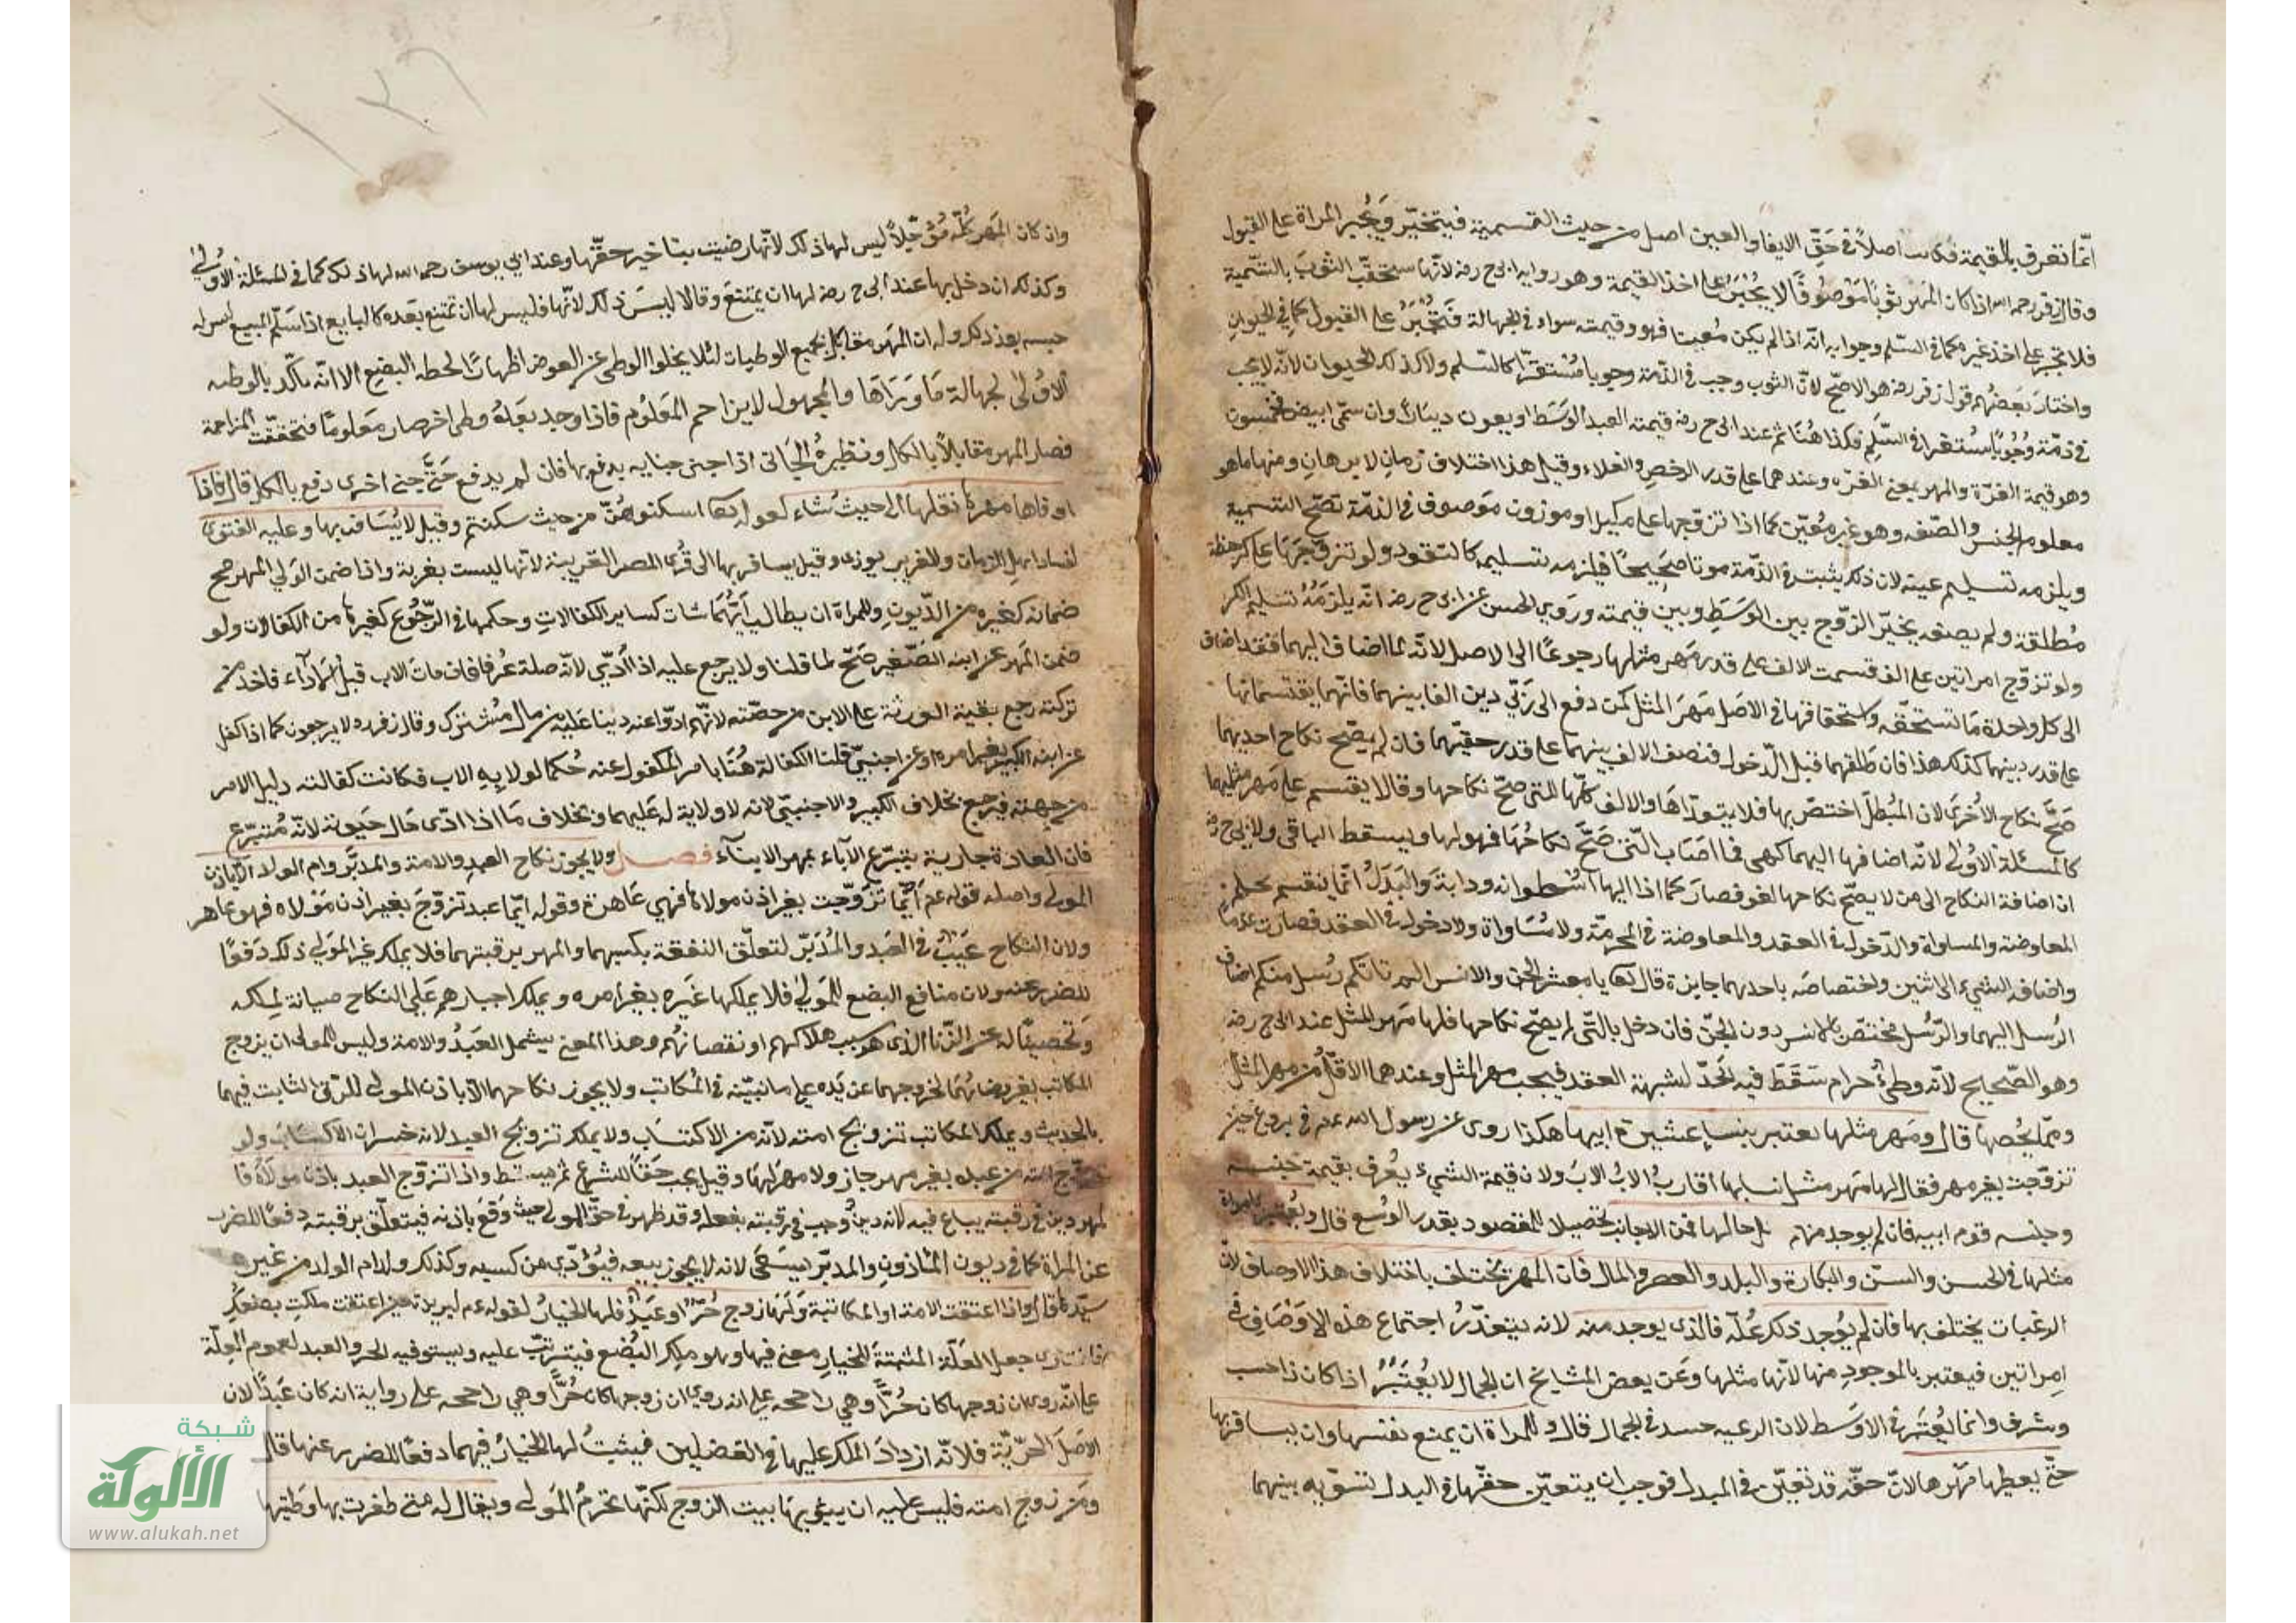 انّما تعرف بالقيمة فكانت اصلاً في حَقِّ الايفا والعين اصل من حيث التسمية فيتخيّر وَيُجبر المراة على القبول
وقال زفر رحمه الله اذا كان المهر ثوبًا مَوْصُوفًا لا يُجْبَرُ على اخذ القيمة وهو رواية ابى ح رضه لانّها ستحقّت الثوبَ بالتّسمية
فلا تجبر على اخذ غيره كما في السّلم وجوابه انّه اذا لم يكن مُعينا فهو وقيمته سواء في الجهالة فَتُجْبَرُ على القبول كما في الحيوان
واختارَ بَعضُهُم قول زفر رضه هو الاصحّ لانّ الثوب وجب في الذّمة وجوبا مُسْتقرّا كالسّلم ولا كذلك الحيوان لانّه لا يجب
في ذمّة وُجُوبًا مُستقرا في السَّلَمِ فكذا هُنَا ثم عند ابى ح رضه قيمته العبد الوسَط اربعون دينارًا وان سمّى ابيض فخمسون
وهو قيمة الغرّة والمهر بمعنى الغرّه وعندهما على قدر الرخص والغلاء وقيل هذا اختلاف زمانٍ لا برهانٍ ومنها ما هو
معلوم الجنس والصّفه وهو غير مُعيّن كما اذا تزوّجها على مكيل او موزون مَوصوف في الذمّة تصحّ التسمية
ويلزمه تسليم عينه لان ذلك يثبت في الذّمّة موتا صَحيحًا فيلزمه تسليمه كالنقود ولو تزوّجَهَا على كر حنطة
مُطلقة ولم يصفه يخيّر الزّوج بين الوَسَطِ وبين قيمته ورَوي الحسن عن ابى ح رضه انّه يلزمُهُ تسليم الكر
ولو تزوّج امراتين على الف قسمت الالف على قدر مَهر مثلها رجوعًا الى الاصل لانّه لمّا اضاف اليهما فقد اضاف
الى كل واحدة مَا تستحقّه واستحقاقها في الاصَل مَهرَ المثل كمن دفع الى رَبّي دين الفا بينهما فانّهما يقتسمانها
على قدر دينهما كذلك هذا فان طلقهما قبل الدّخول فنصف الالف بينهما على قدر حقّهما فان لم يصّح نكاح احديهما
صَحَّ نكاح الاُخرَى لان المُبْطِلَ اختصّ بها فلا يتعدّاهَا والالف كلّها للتى صَحَّ نكاحها وقالا يقتسم على مَهر مثليهما
كالمسئلة الاُولى لانّه اضافها اليهما كهى فما اصَابَ الّتى صَحَّ نكاحُهَا فهو لها ويسقط الباقى ولابى ح رضه
ان اضافة النكاح الى من لا يصحّ نكاحها لغو فصارَ كما اذا اليها اسْطوانه ودابة والبَدَلُ انّما ينقسم بحكم
المعاوضة والمساواة والدّخول في العقد والمعاوضة في المحرمّة ولا مُسَاواة ولا دخول في العقد فصارت عدمًا
واضافة الشيء الى اثنين واختصاصَه باحدهما جايزة قال تعا يا معشر الجن والانس الم ياتكم رُسل منكم اضاف
الرُسل اليهما والرّسُل مختصّ بالانس دون الجنّ فان دخل بالتّى لم يصحّ نكاحها فلها مَهر المثل عند ابى ح رضه
وهو الصّحيح لانّه وطئ حرام سَقَطَ فيه الحَدّ لشبهة العقد فيجب مهر المثل وعندهما الاقلُّ من مهر المثل
وممّا يخُصها قال ومَهر مثلها يعتبر بنساء عشيرة ابيها هكذا روى عن رسول الله عم في بروع حين
تزوّجت بغير مهر فقال لها مَهر مثل نسايها اقاربُ الابُ الابَ ولان قيمة الشيء يعُرف بقيمة جنسه
وجنسه قوم ابيه فان لم يوجد منهم مثل حالها فمن الاجانب تحصيلا للمقصود بقدر الوُسع قال ويُعتبر بامراة
مثلها في الحسن والسنّ والبكارة والبلد والعصر والمال فان المهر يختلف باختلاف هذا الاوصاف لانّ
الرغبات يختلف بها فان لم يوُجد ذلك كُلّه فالذى يوجد منه لانه يتعذّرُ اجتماع هذه الاوصَافِ في
امراتين فيعتبر بالموجود منها لانّها مثلها وعَن بعض المشايخ ان الجمال لا يُعْتَبَرُ اذا كان ذا حسب
وشرف وانما يُعْتَبَر في الاوسَط لان الرغبه حسد في الجمال قال وللمراة ان يمنع نفسها وان يسافر بها
حتّى يعطيها مَهْرها لانّ حقّه قد تعيّن في المبدل فوجب ان يتعيّن حقّها في البدل تسويه بينهما
وان كان المَهر كلُّه مُؤجّلاً ليس لها ذلك لانّها رضيت بتاخير حقّها وعند ابى يوسف رحمه الله لها ذلك كما في المسئلة الاُولىَ
وكذلك ان دخل بها عند ابى ح رضه لها ان يمتنعَ وقالا ليسَ ذلك لانّها فليس لها ان تمتنع بَعده كالبايع اذا سَلّم المبيع ليس له
حبسه بعد ذلك وله ان المَهر مقابل بجميع الوطيات لئلا يخلوا الوطى عن العوض اظهارًا لخطه البضع الا انّه يتاكّد بالوطيه
الاوُلى لجهالة مَا وَرَاهَا والمجهول لا يزاحم المَعلوُم فاذا وجد بَعدَهُ وطى اخر صار مَعلومًا فتحققت المزاحمة
فصار المهر مقابلاً بالكل ونظيرهُ الجَانى اذا جنى جنايه يدفع بها فان لم يدفع حَتّى جنى اخرى دفع بالكل قال فاذا
اوفاها مهرها نقلها الى حيث شاء لقوله تعا اسكنوهُنّ من حيث سكنتم وقيل لا يُسَافِر بها وعليه الفتوى
لفساد اهل الزمان والغريب يوذى وقيل يسافر بها الى قُرى المصر القريبة لانّها ليست بغربة واذا ضمن الوَلي المَهر صح
ضمانه كغيره من الدّيونِ وللمراة ان يطالب ايَّهُمَا شات كساير الكفالاتِ وحكمها في الرّجُوع كغيرها من الكفالات ولو
ضمن المَهر عن ابنه الصَّغير صَحّ لما قلنا ولا يرجع عليه اذا ادّي لانّه صلة عُرفا فان مات الاب قبل الادَآء فاخذ من
تركته رجع بقية الورثة على الابن من حصّته لانّهم ادّوا عنه دينا عَليْه من مال مُشترك وقال زفر ره لا يرجعون كما اذا كفل
عن ابنه الكبير بغير امره او عن اجنبيّ قلنا الكفالة هُنَا بامر المكفول عنه حُكما لولايةِ الاب فكانت كفالته دليل الامر
من جهته فيرجع بخلاف الكبير والاجنبيّ لانه لا ولاية له عَليهما وبخلاف مَا اذا ادّى حَال حيوته لانّه مُتبرّع
فان العادة جارية بتبرّع الآباء بمهر الابنآء فصل ولا يجوز نكاح العبدِ والامة والمدبَّر وام الولد الّا باذن
المَولَى واصله قوله عم ايّما تزَوّجت بغير اذن مولاها فهي عَاهرة وقوله ايّما عبد تزوّجَ بغير اذن مَوْلاه فهو عَاهر
ولان النكاح عَيْبٌ في العَبد والمُدَبّر لتعلّق النفقة بكسبهما والمهر برقبتهما فلا يملك غير المَولَي ذلك دَفعًا
للضرر عنه ولان منافع البضع للمَولي فلا يملكها غَيره بغير امره ويملك اجبارهم عَلَى النكاح صيانة لملكه
وَتحصينًا له عن الزّنا الذى هو سبب هلاكهم او نقصانهُم وهذا المعنى يشمل العَبدُ والامة وليس للمولى ان يزوج
المكاتب بغير رضائهُمَا لخروجهما عن يَده على ما نبيّنه في المُكاتب ولا يجوز نكاحهما الّا باذن المولى للرّق الثابت فيهما
بالحديث ويملك المكاتب تزويج امته لانّه من الاكتسَاب ولا يملك تزويج العبد لانه خسران الاكتسَاب ولو
زوّج امته من عبده بغير مهر جاز ولا مهرَ لهَا وقيل يجب حَقًّا للشرع ثم يسقط واذا تزوّج العبد باذن مولاهُ فا
لمهر دين في رقبته يباع فيه لانّه دينٌ وُجب في رقبته بفعله وقد ظهر في حقّ المولى حيث وَقَعَ باذنه فيتعلّق برقبته دفعًا للضرر
عن المراة كما في ديون المَاذون والمدبّر يَسَعَى لانه لا يجوز بيعه فيُؤدّى من كسبه وكذلك ولد ام الولد من غير
سيّدها قال واذا اعتقت الامة او المكاتبة وَلهَا زوج حُرّ او عَبدٌ فلها الخيارُ لقوله عم لبريرة حين اعتقت ملكتِ بضعكِ
فاختارى جعل العلّة المثبتةَ للخيارِ معنى فيها وهو ملك البُضع فيترتّب عليه ويستوفيه الحر والعبد لعموم العلّة
على انّه روى ان زوجها كان حُرًّا وهي راجحه على انه روى ان زوجها كان حُرًّا وهي راجحه على رواية انه كان عَبدًا لان
الاصَل الحرّيّة فلانّه ازدادَ الملك عليها في الفضلين فيثبتُ لها الخيارُ فيهما دفعًا للضرر عنها قال
ومَن زوج امته فليس عليه ان يبوّيها بيت الزوج لكنّها تخدمُ المَولى ويقال له متى ظفرت بها وَطئتها
شبكة
الألوكة
www.alukah.net